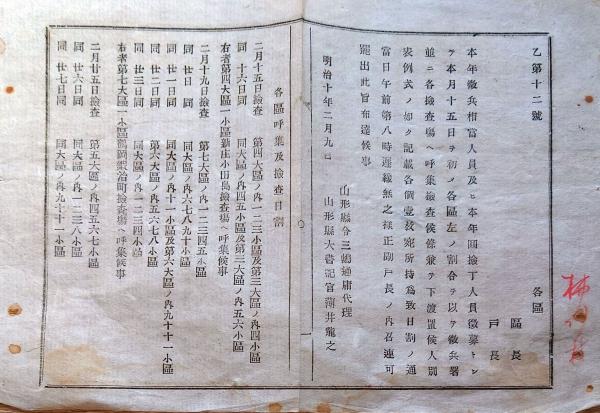 乙第十二號
各區
區長
戶長
本年徵兵相當人員及ヒ本年囘撿丁人員徵募トシ
テ本月十五日ヲ初メ各區左ノ割合ヲ以テ徵兵署
並ニ各撿査場ヘ呼集撿査候條兼テ下渡置候人別
表例式ノ如ク記載各個壹枚宛所持爲致日割ノ通
當日午前第八時遲緩無之樣正副戶長ノ內召連可
罷出此旨布達候事
明治十年二月九日
山形縣令三島通庸代理
山形縣大書記官薄井龍之
各區呼集及撿査日割
二月十五日撿査 第四大區ノ內一二三小區及第三大區ノ內四小區
同 十六日同 同大區ノ內四五小區及第三大區ノ內五六小區
右者第四大區一小區新庄小田島撿査場ヘ呼集候事
二月十九日撿査 第七大區ノ內一二三四五小區
同 廿日 同 同大區ノ內六七八九十小區
同 廿一日同 同大區ノ內十一小區及第六大區ノ內九十十一小區
同 廿二日同 第六大區ノ內五六七八小區
同 廿三日同 同大區ノ內一二三四小區
右者第七大區一小區鶴岡鍛冶町撿査場ヘ呼集候事
二月廿五日撿査 第五大區ノ內四五六七小區
同 廿六日同 同大區ノ內一二三八小區
同 廿七日同 同大區ノ內九十十一小區